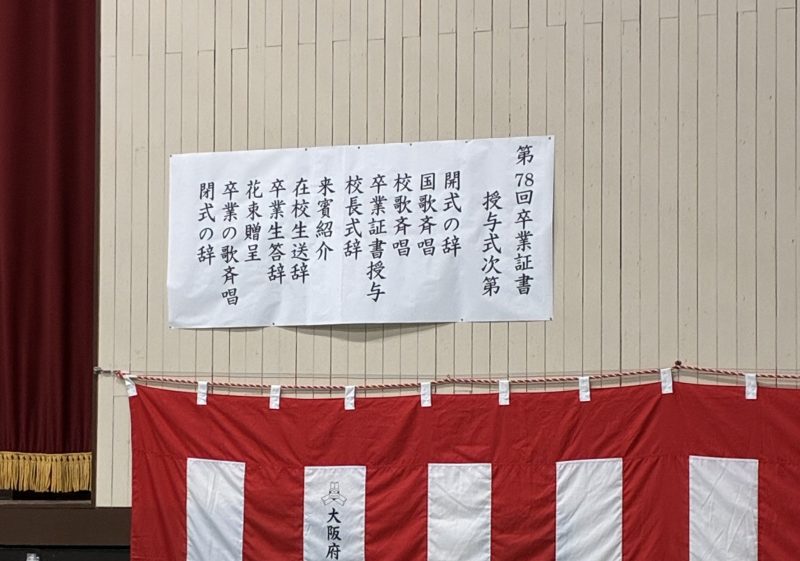 第78回卒業証書
授与式次第
開式の辞
国歌斉唱
校歌斉唱
卒業証書授与
校長式辞
来賓紹介
在校生送辞
卒業生答辞
花束贈呈
卒業の歌斉唱
閉式の辞
大阪府